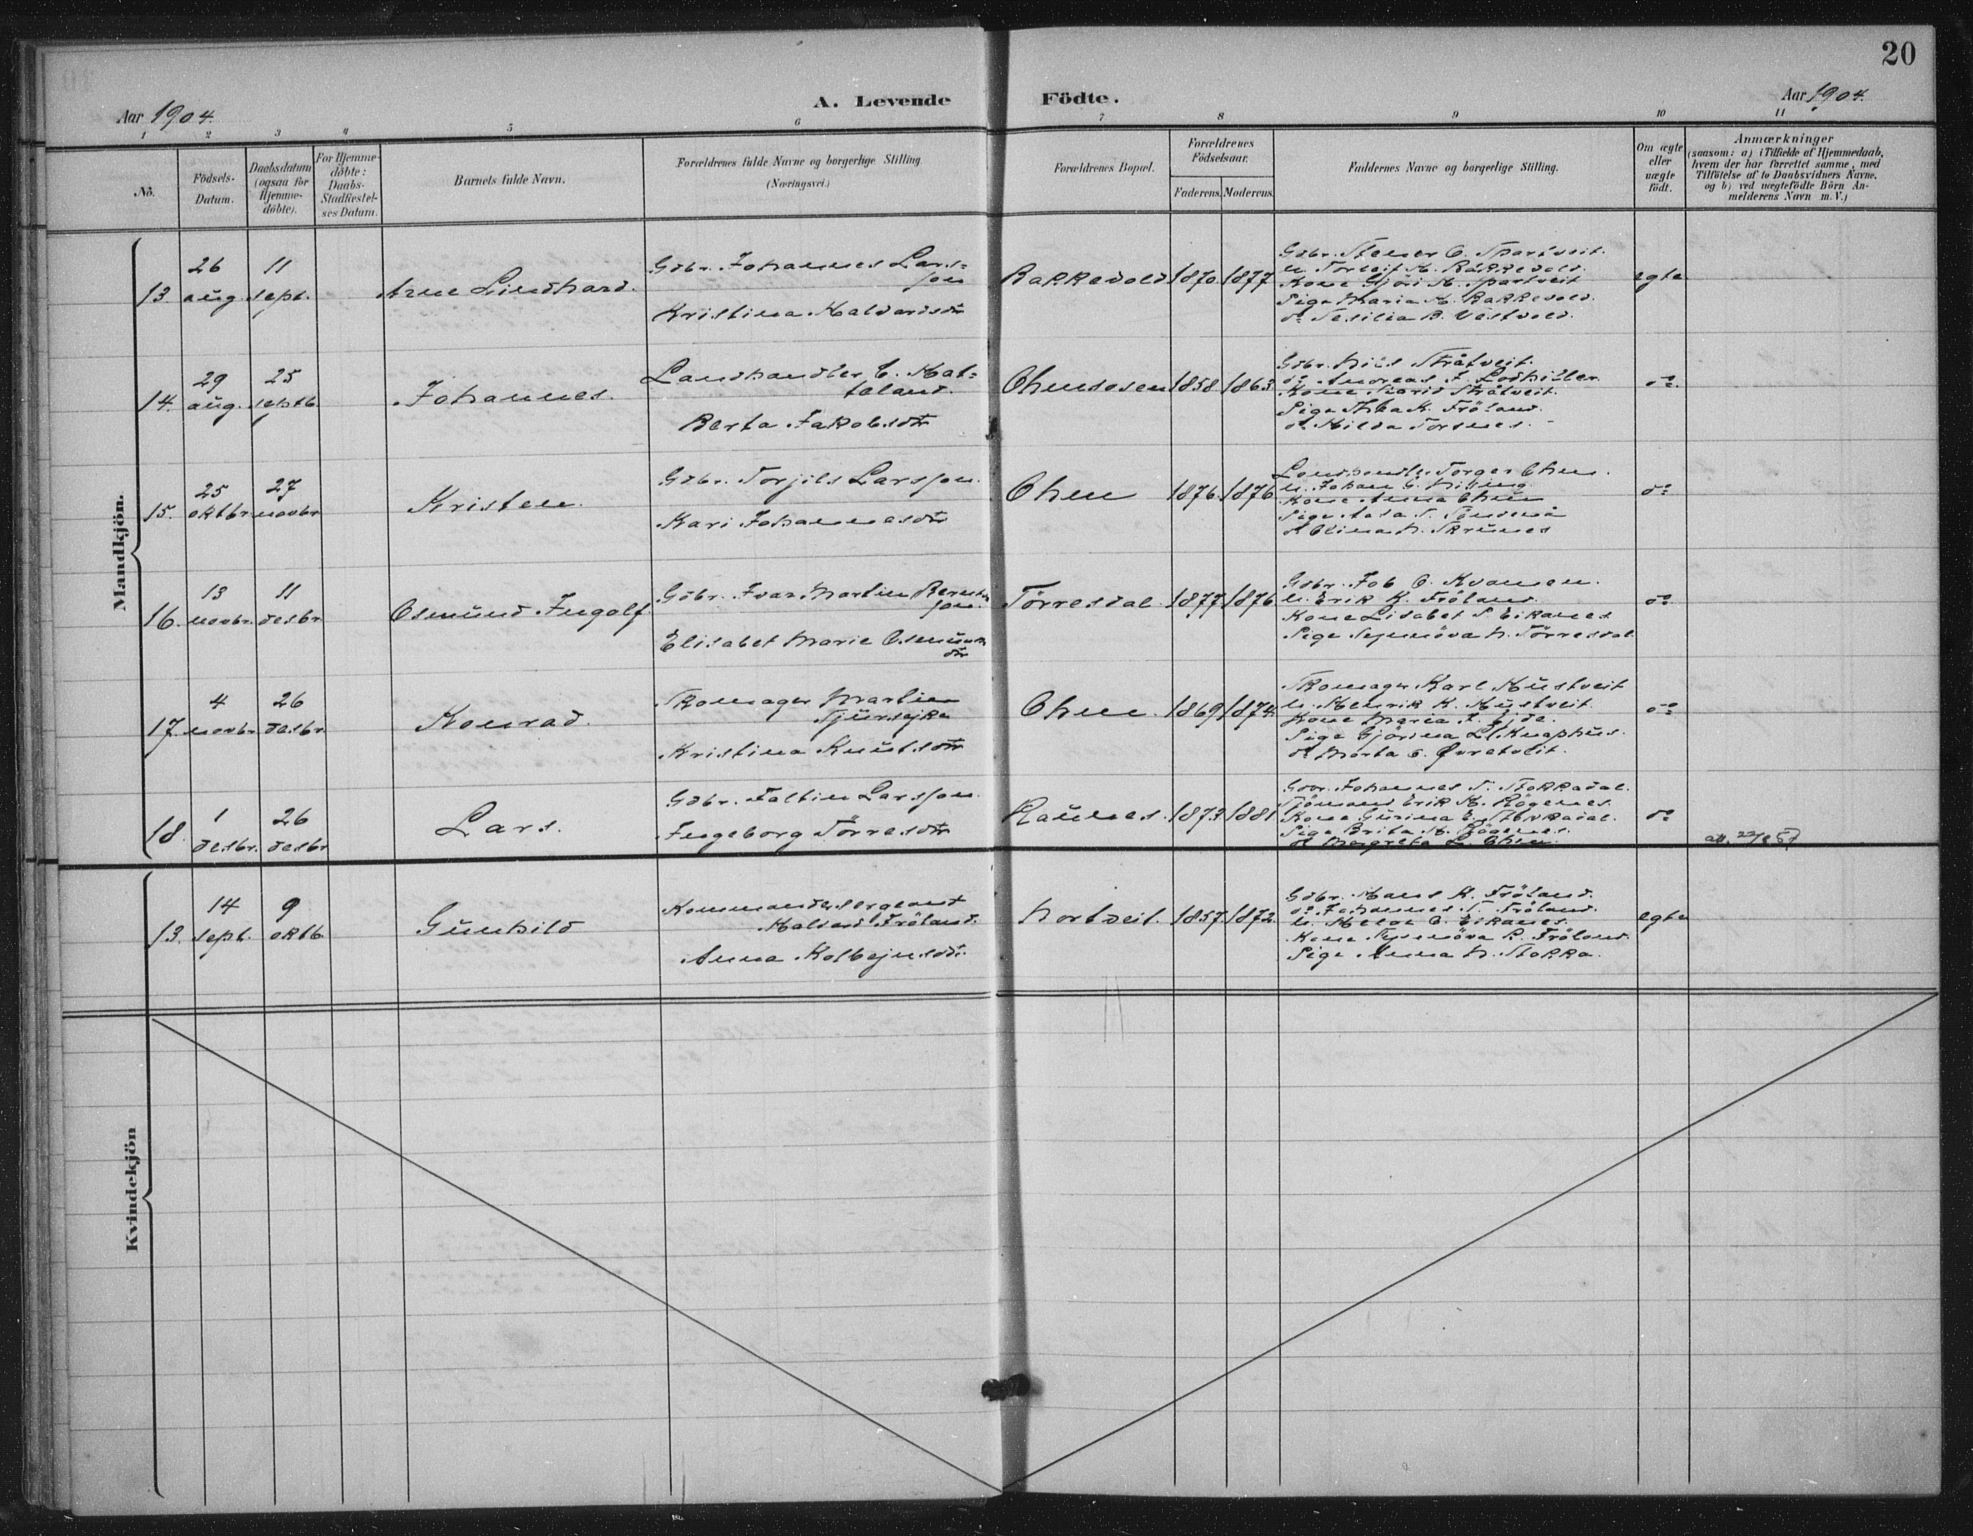 20
Aar 1904.
A. Levende Födte.
Aar 1904.
1 2 3 4 5 6 7 8 9 10 11
No.
Födsels-Datum.
Daabsdatum (ogsaa for Hjemme-döbte).
For Hjemme-döbte: Daabs-Stadfæstel-ses Datum.
Barnets fulde Navn.
Forældrenes fulde Navne og borgerlige Stilling.
(Næringsvei.)
Forældrenes Bopæl.
Forældrenes Födselsaar.
Faderens. Moderens.
Faddernes Navne og borgerlige Stilling.
Om ægte eller uægte født.
Anmærkninger
(saasom: a) i Tilfælde af Hjemmedaab,
hvem der har forrettet samme, med
Tilföielse af to Daabsvidners Navne,
og b) ved uægtefödte Börn An-
melderens Navn m. V.)
Mandkjön.
13. 26 aug. 11 sept. Arne Lindhard.
Gdbr. Johannes Lars=
son
Kristina Halvardsdtr
Bakkevold 1870. 1877.
Gdbr. Stener O. Spartveit.
u. Torleif H. Bakkevold.
Kone Gjöri H. Spartveit
Pige Maria H. Bakkevold.
do Sesilia B. Vestvold.
egte
14. 29 aug. 25 septb. Johannes.
Landhandler E. Hal=
taland.
Berta Jakobsdtr
Ohmsosen 1858. 1863.
Gdbr. Nils Tråtveit.
do Andreas J. Lodhiller.
Kone Marid Tråtveit.
Pige Thea K. Fröland.
do Hilda Torsnes.
do
15. 25 oktbr. 27 novbr Kristen.
Gdbr. Torjils Larsson.
Kari Johannesdtr
Ohm 1876. 1876.
Landhandler Torger Ohm.
u. Johan
Kone Anna Ohm
Pige Aasa
do Elina N. Skrunes
do
16. 13 novbr. 11 desbr. Osmund Ingolf.
Gdbr. Ivar Martin Bernts
son.
Elisabet Marie Osmunds
dtr
Törresdal. 1877. 1876.
Gdbr. Job O. Kvamen.
u. Erik K. Fröland.
Kone Lisabet P. Eikanes
Pige Synnöva N. Törresdal
do
17. 4 novbr. 26 desbr. Konrad.
Skomager Martin
Kristina Knutsdtr
Ohm. 1869. 1874.
Skomager Karl Hustveit
u. Henrik K. Hustveit.
Kone Maria J. Eide.
Pige Gjörina L. Knaphus.
do Marta G. Övretveit.
do
18. 1 desbr. 26 desbr Lars.
Gdbr. Faltin Larsson.
Ingeborg Törresdtr
Raunes. 1873. 1881.
Gdbr. Johannes N. Stokkadal.
Sjömand Erik H. Rögenes.
Kone Gurina E. Stokkadal.
Pige Brita H. Rögenes.
do Margreta L. Ohm.
do
Kvindekjön
13. 14 sept. 9 oktb. Gunhild
Kommandersergeant
Halvard Fröland.
Anna Kolbejnsdtr.
Nortveit. 1857. 1872.
Gdbr. Hans K. Fröland.
do Johannes T. Fröland.
u. Helge O. Eikanes.
Kone Synnöva R. Fröland.
Pige Anna N. Stokka.
egte